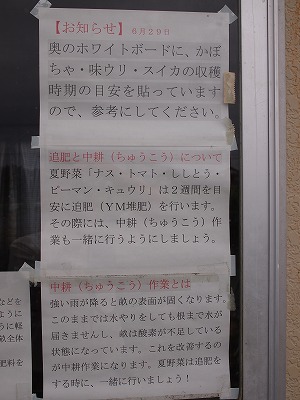 【お知らせ】 6月29日
奥のホワイトボードに、かぼ
ちゃ・味ウリ・スイカの収穫
時期の目安を貼っています
ので、参考にしてください。
追肥と中耕（ちゅうこう）について
夏野菜「ナス・トマト・ししとう・
ピーマン・キュウリ」は2週間を
目安に追肥（YM堆肥）を行います。
その際には、中耕（ちゅうこう）作
業も一緒に行うようにしましょう。
中耕（ちゅうこう）作業とは
強い雨が降ると畝の表面が固くなります。
このままでは水やりをしても根まで水が
届きませんし、畝は酸素が不足している
状態になっています。これを改善するの
が中耕作業になります。夏野菜は追肥を
する時に、一緒に行いましょう！
などを
ように
うに軽
畝全体
肥料を